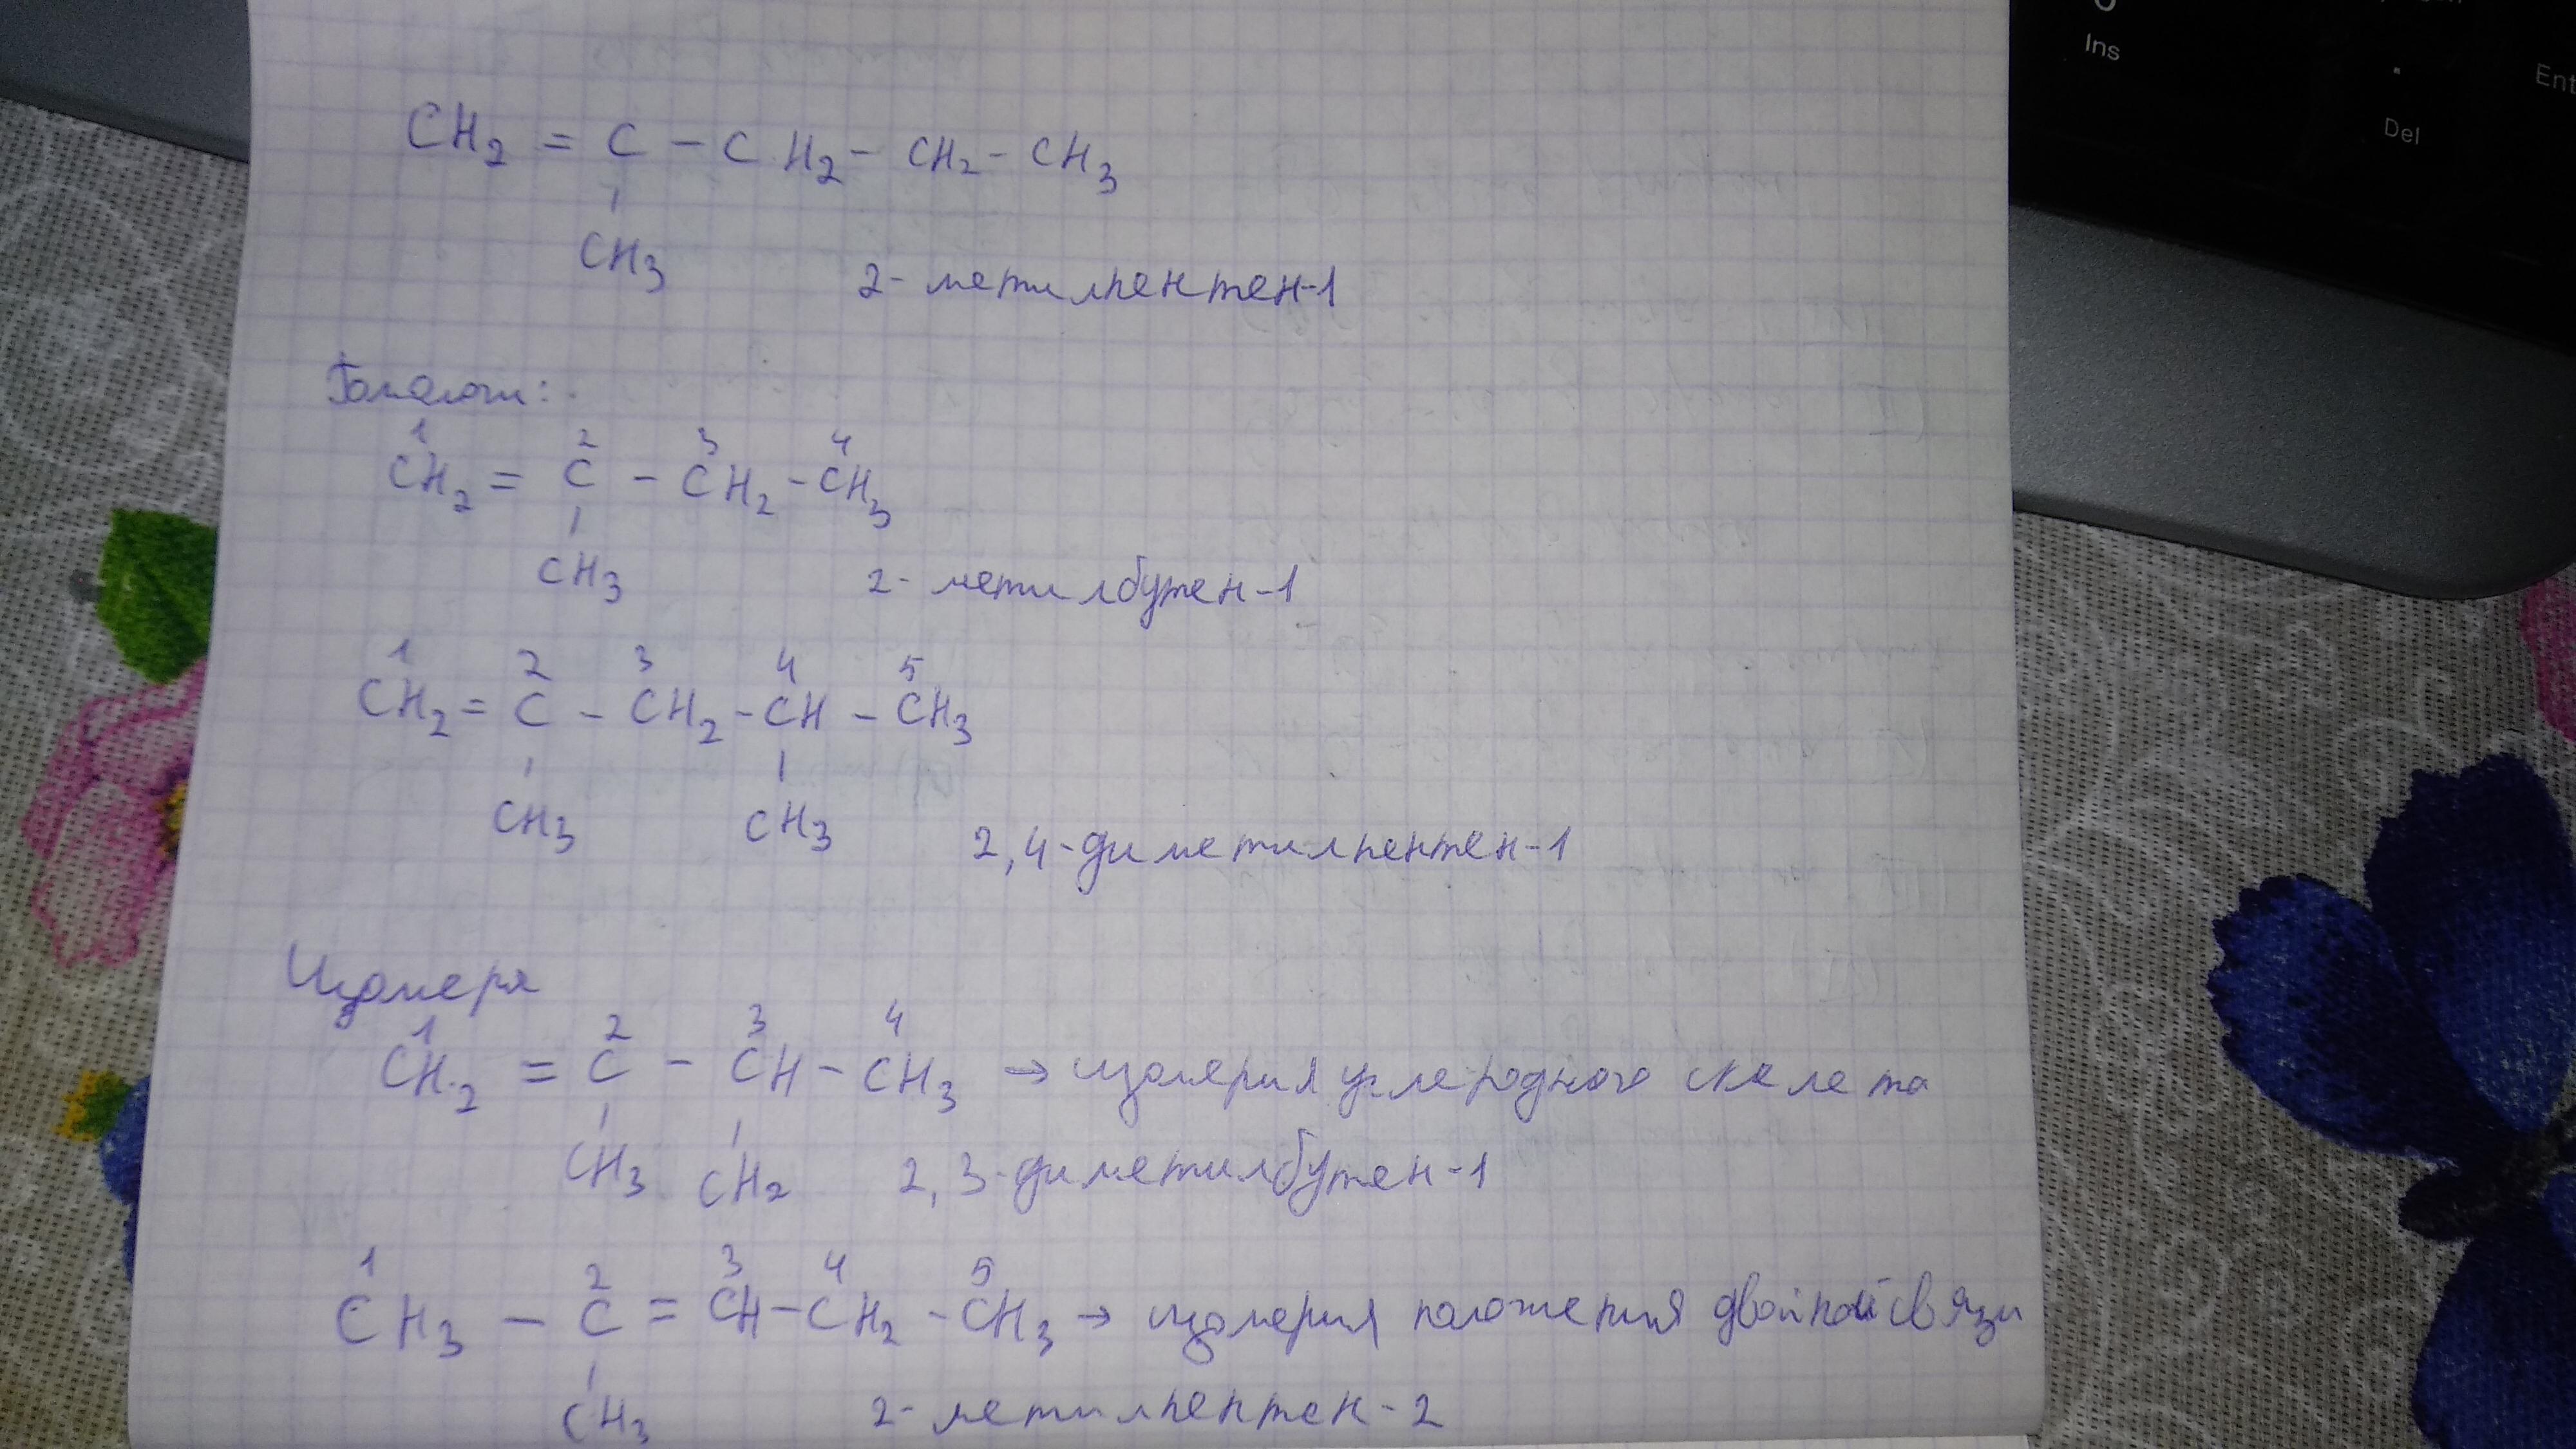 Ins
Del
Ent
CH2 = C - CH2 - CH2 - CH3
CH3
2-метилпентен-1
Гомологи:
1 2 3 4
CH2 = C - CH2 - CH3
CH3
2-метилбутен-1
1 2 3 4 5
CH2 = C - CH2 - CH - CH3
CH3 CH3
2,4-диметилпентен-1
Изомеря
1 2 3 4
CH2 = C - CH - CH3 → изомерия углеродного скелета
CH3 CH2 2,3-диметилбутен-1
1 2 3 4 5
CH3 - C = CH - CH2 - CH3 → изомерия положения двойной связи
CH3 2-метилпентен-2